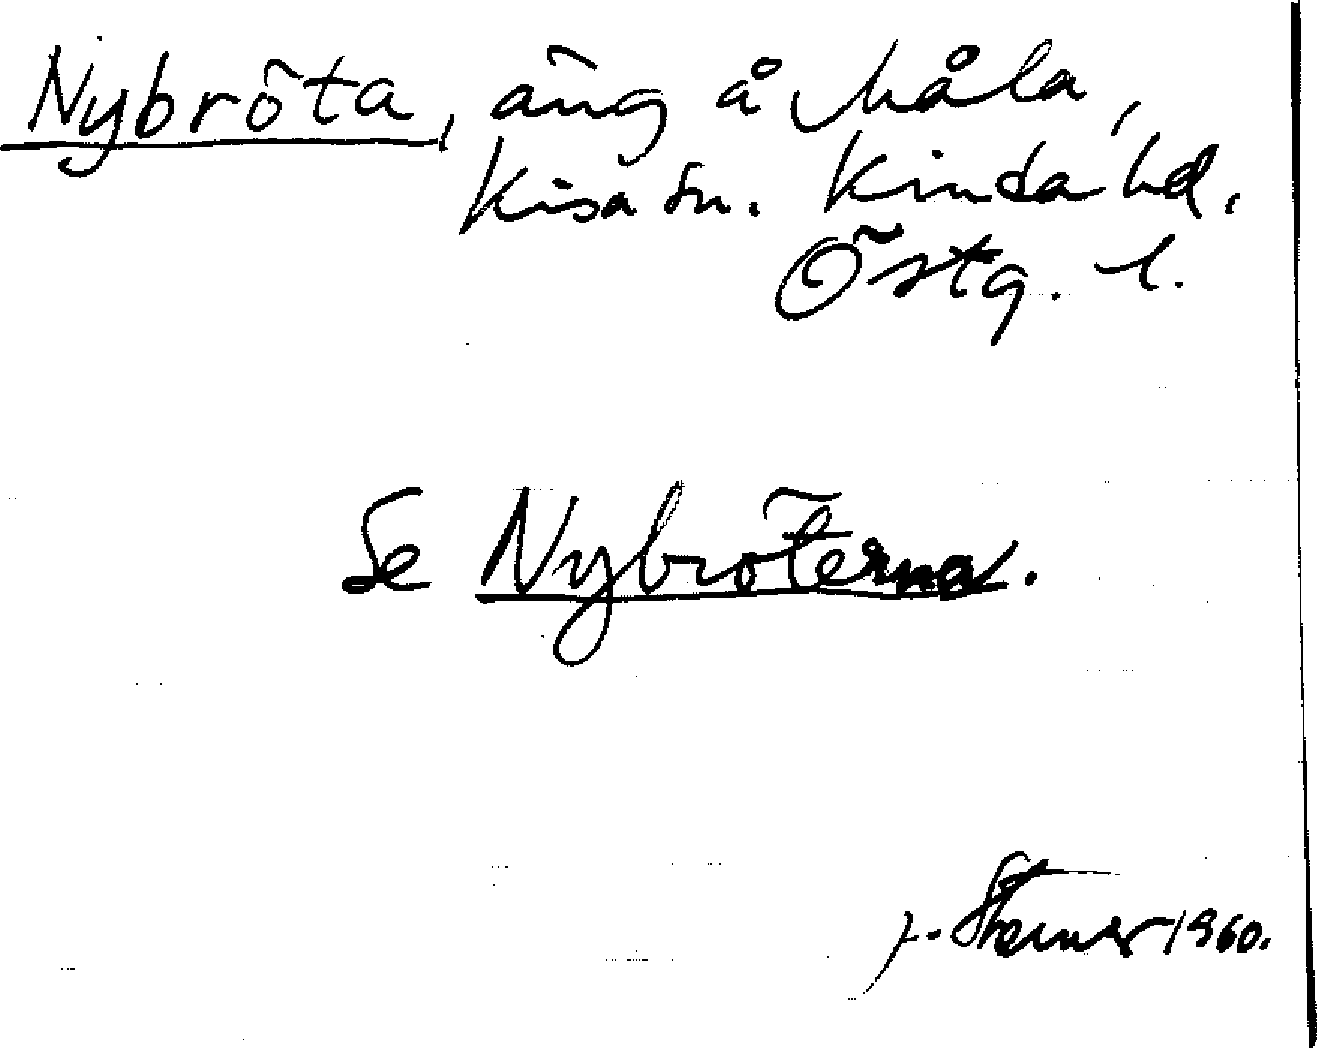 Nybröta, äng å Måla,
Kisa sn. Kinda hd.
Östg. l.
Se Nybröterna.
1960.